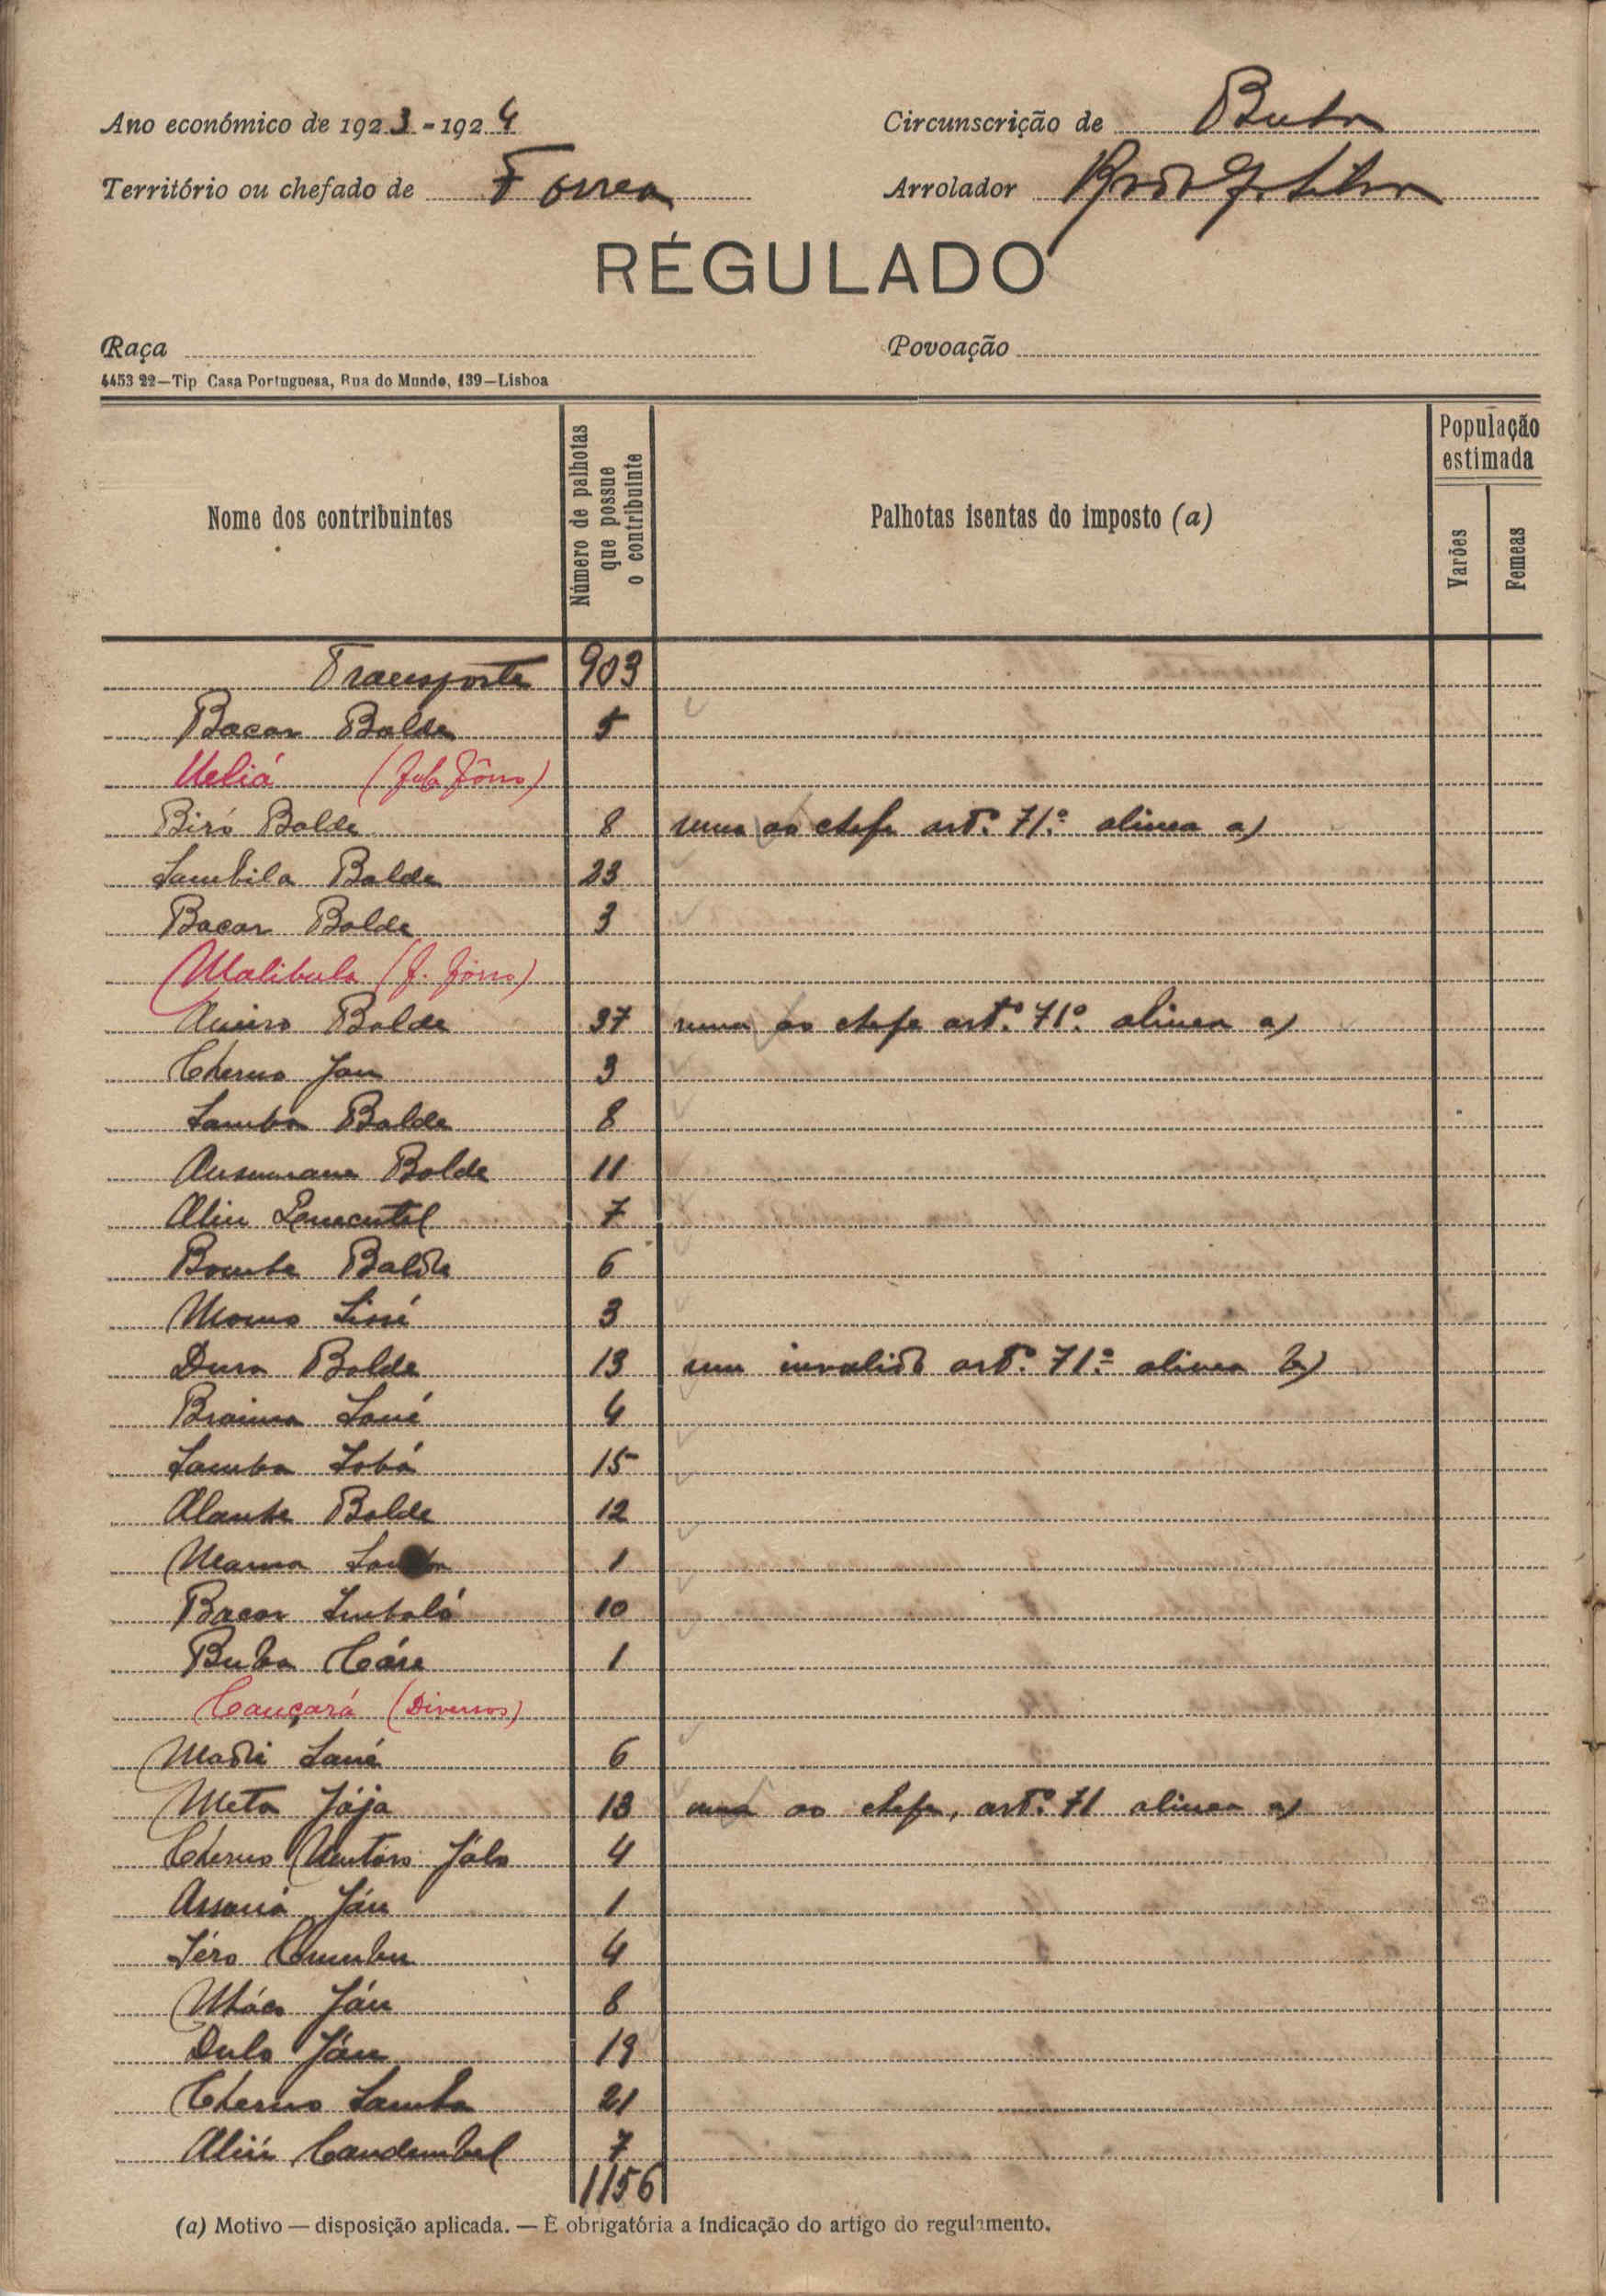 Ano económico de 1923-1924
Circunscrição de Buba
Território ou chefado de Forrea
Arrolador
RÉGULADO
Raça
Povoação
4453 22—Tip Casa Portuguesa, Rua do Mundo, 139—Lisboa
Nome dos contribuintes
Número de palhotas que possue o contribuinte
Palhotas isentas do imposto (a)
População estimada
Varões
Femeas
Transporte 903
Bacar Balde 5
Ueliá
Biró Balde 8 uma ao chefe artº. 71.º alinea a)
Sambila Balde 23
Bacar Balde 3
Malibula
Balde 37 uma ao chefe artº. 71º. alinea a)
Cherno Jau 3
Samba Balde 8
Ansumane Balde 11
Aliu 7
Bombe Balde 6
Momo 3
Dura Balde 13 um invalido artº. 71.º alinea b)
Braima Sané 4
Samba 15
Alanke Balde 12
Mama 1
Bacar Embaló 10
Buba 1
Cauçará (Diversos)
Madi Sané 6
Meta Jója 13 uma ao chefe, artº. 71 alinea a)
Cherno Mutáro Jaló 4
Assaná Jáu 1
4
Jáu 8
Dulo Jáu 19
Cherno Samba 21
Aliú Candembel 7
1156
(a) Motivo — disposição aplicada. — É obrigatória a indicação do artigo do regulamento.